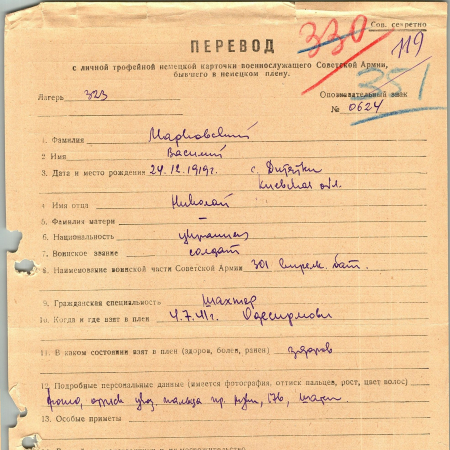 330
Сов. секретно
119
ПЕРЕВОД
с личной трофейной немецкой карточки военнослужащего Советской Армии,
бывшего в немецком плену.
351
Лагерь 323
Опознавательный знак
№ 0624
1. Фамилия Марковский
2 Имя Василий
3. Дата и место рождения 24.12.1919г. с. Дитятки
Киевская обл.
4. Имя отца Николай
5. Фамилия матери –
6. Национальность украинец
7. Воинское звание солдат
8. Наименование воинской части Советской Армии 301 стрелк. бат.
9. Гражданская специальность шахтер
10. Когда и где взят в плен 4.7.41г.
11. В каком состоянии взят в плен (здоров, болен, ранен) здоров
12. Подробные персональные данные (имеется фотография, оттиск пальцев, рост, цвет волос)
фото, оттиск указ. пальца пр. руки, 176,
13. Особые приметы